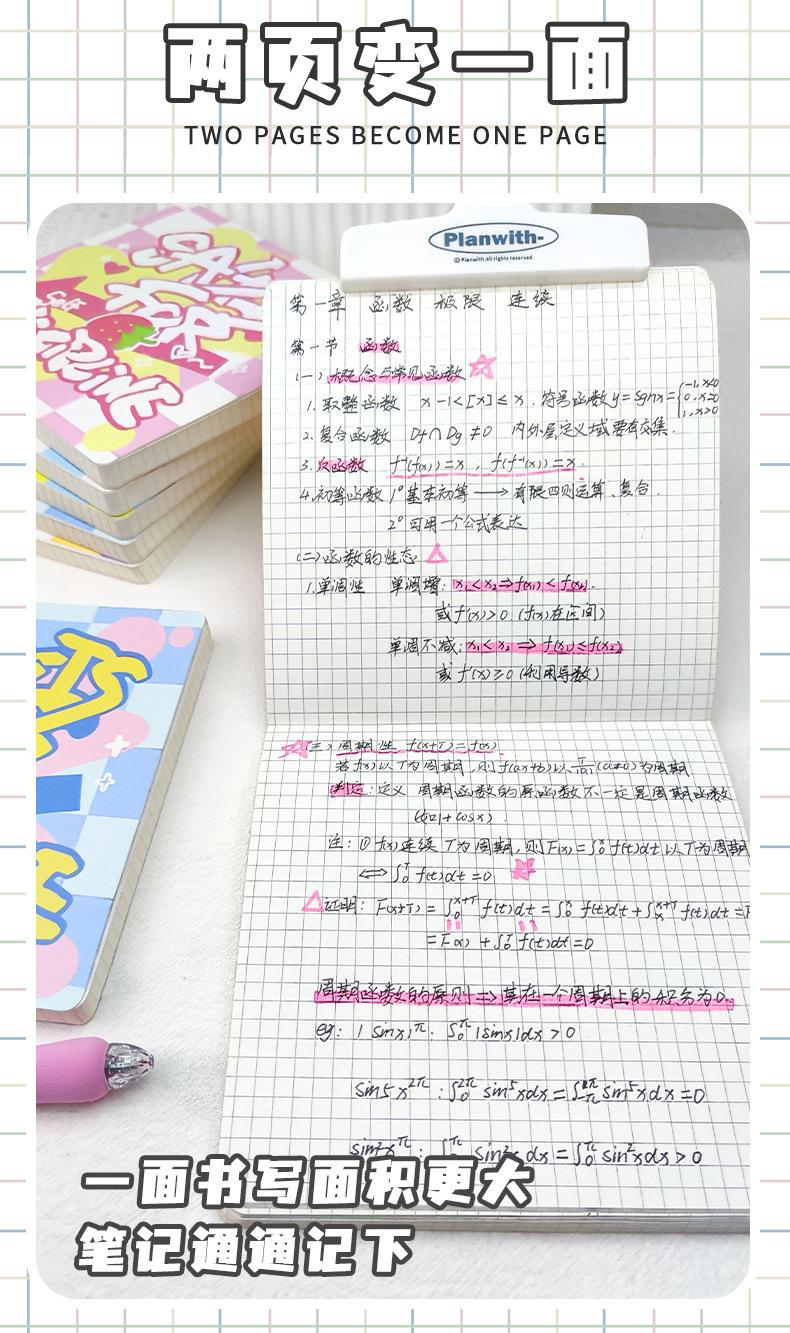 两页变一面
TWO PAGES BECOME ONE PAGE
Planwith-
© Planwith.all rights reserved.
第一章 函数 极限 连续
第一节 函数
(一) 概念与常见函数
1. 取整函数 x-1<[x]≤x. 符号函数 y=sgnx={-1, x<0
0, x=0
1, x>0
2. 复合函数 Df∩Dg≠0 内外层定义域要有交集.
3. 反函数 f⁻¹(f(x))=x , f(f⁻¹(x))=x.
4. 初等函数 1° 基本初等 → 有限四则运算、复合.
2° 可用一个公式表达
(二) 函数的性态
1. 单调性 单调增: x₁<x₂⇒f(x₁)<f(x₂).
或 f'(x)>0. (f(x)在区间)
单调不减: x₁<x₂ ⇒ f(x₁)≤f(x₂)
或 f'(x)≥0 (利用导数)
(三) 周期性 f(x+T)=f(x)
若 f(x) 以T为周期, 则 f(ax+b) 以 T/|a| (a≠0) 为周期
判定: 定义 周期函数的原函数不一定是周期函数
注: ① f(x) 连续 T为周期, 则 F(x)=∫₀ˣ f(t)dt 以T为周期
⇔ ∫₀ᵀ f(t)dt=0
证明: F(x+T) = ∫₀ˣ⁺ᵀ f(t)dt = ∫₀ˣ f(t)dt + ∫ₓˣ⁺ᵀ f(t)dt = F
= F(x) + ∫₀ᵀ f(t)dt=0
周期函数的原则 ⇒ 其在一个周期上的积分为0.
eg: |sinx|^π. ∫₀^π |sinx|dx > 0
sin5x^2π : ∫₀^2π sin⁵xdx = ∫₋π^π sin⁵xdx = 0
sin²x^π : ∫₀^π sin²xdx = ∫₀^π sin²xdx > 0
一面书写面积更大
笔记通通记下